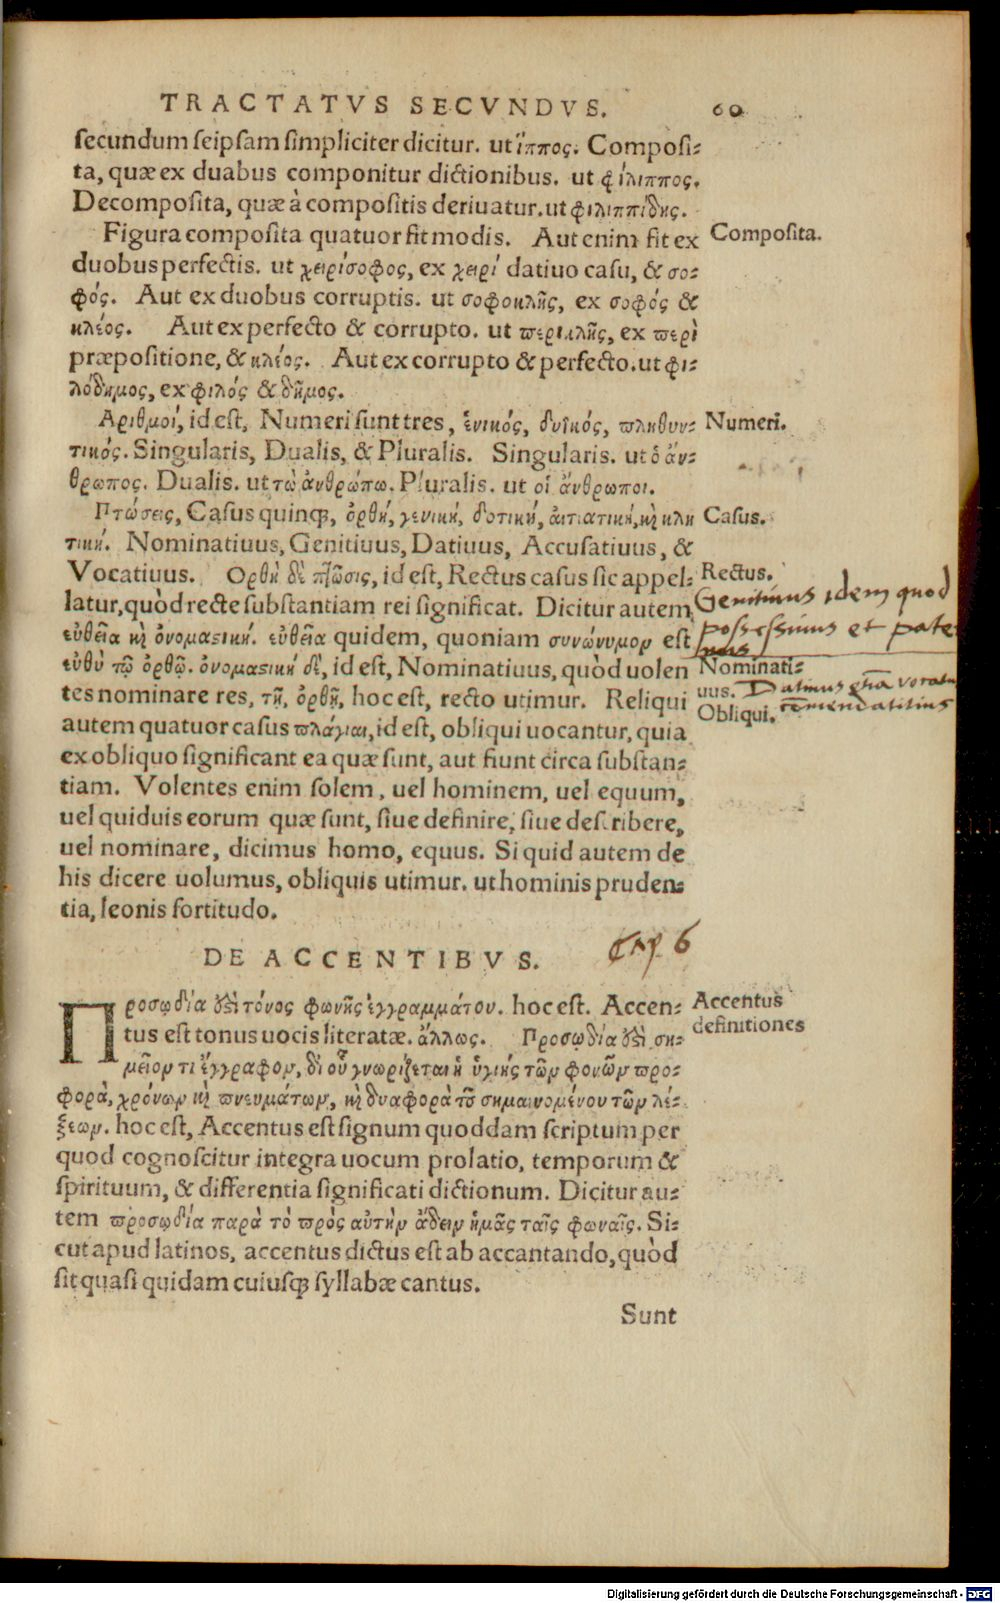 TRACTATVS SECVNDVS. 60
secundum seipsam simpliciter dicitur. ut ἵππος. Composi-
ta, quæ ex duabus componitur dictionibus. ut φίλιππος.
Decomposita, quæ à compositis deriuatur. ut φιλιππίδης.
Figura composita quatuor fit modis. Aut enim fit ex
Composita.
duobus perfectis. ut χειρίσοφος, ex χειρί datiuo casu, & σο-
φός. Aut ex duobus corruptis. ut σοφοκλῆς, ex σοφός &
κλέος. Aut ex perfecto & corrupto. ut περικλῆς, ex περὶ
præpositione, & κλέος. Aut ex corrupto & perfecto. ut φι-
λόδημος, ex φιλός & δῆμος.
Αριθμοί, id est, Numeri sunt tres, ἑνικός, δυϊκός, πληθυν-
Numeri.
τικός. Singularis, Dualis, & Pluralis. Singularis. ut ὁ ἄν-
θρωπος. Dualis. ut τὼ ἀνθρώπω. Pluralis. ut οἱ ἄνθρωποι.
Πτώσεις, Casus quinq;, ὀρθή, γενική, δοτική, αἰτιατική, κὶ κλη
Casus.
τική. Nominatiuus, Genitiuus, Datiuus, Accusatiuus, &
Vocatiuus. Ορθὴ δὲ πτῶσις, id est, Rectus casus sic appel-
Rectus.
latur, quòd recte substantiam rei significat. Dicitur autem
Genitiuus idem quod
possessiuus et pate
nus
εὐθεῖα κὶ ὀνομαστική. εὐθεῖα quidem, quoniam συνώνυμον est
εὐθὺ τῷ ὀρθῷ. ὀνομαστικὴ δὲ, id est, Nominatiuus, quòd uolen
Nominati-
uus. Datiuus etiā vocatur
cōmendatitius
tes nominare res, τῇ, ὀρθῇ, hoc est, recto utimur. Reliqui
Obliqui.
autem quatuor casus πλάγιαι, id est, obliqui uocantur, quia
ex obliquo significant ea quæ sunt, aut fiunt circa substan-
tiam. Volentes enim solem, uel hominem, uel equum,
uel quiduis eorum quæ sunt, siue definire, siue describere,
uel nominare, dicimus homo, equus. Si quid autem de
his dicere uolumus, obliquis utimur. ut hominis pruden-
tia, leonis fortitudo.
DE ACCENTIBVS. Cap. 6
Προσῳδία ἐστὶ τόνος φωνῆς ἐγγραμμάτου. hoc est. Accen-
Accentus
definitiones
tus est tonus uocis literatæ. ἄλλως. Προσῳδία ἐστὶ ση-
μεῖον τι ἔγγραφον, δι οὗ γνωρίζεται ἡ ὑγιής τῶν φονῶν προ-
φορὰ, χρόνων κὶ πνευμάτων, κὶ δυαφορὰ τοῦ σημαινομένου τῶν λέ-
ξεων. hoc est, Accentus est signum quoddam scriptum per
quod cognoscitur integra uocum prolatio, temporum &
spirituum, & differentia significati dictionum. Dicitur au-
tem προσῳδία παρὰ τὸ πρὸς αὐτὴν ἄδειν ἡμᾶς ταῖς φωναῖς. Si-
cut apud latinos, accentus dictus est ab accantando, quòd
sit quasi quidam cuiusq; syllabæ cantus.
Sunt
Digitalisierung gefördert durch die Deutsche Forschungsgemeinschaft - DFG